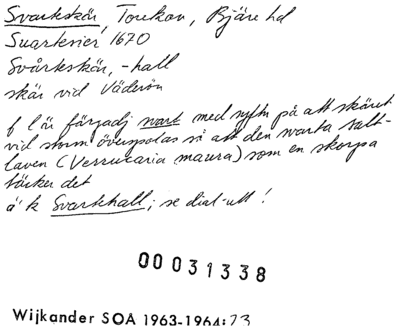 Svartskär, Torekov, Bjäre hd
Suartesier 1670
Svårteskär, -hall
skär vid Väderön
f l är färgadj svart med syftn på att skäret
vid storm överspolas så att den svarta salt-
laven (Verrucaria maura) som en skorpa
täcker det
å k Svarthall; se dial-utt!
00031338
Wijkander SOA 1963-1964: 23